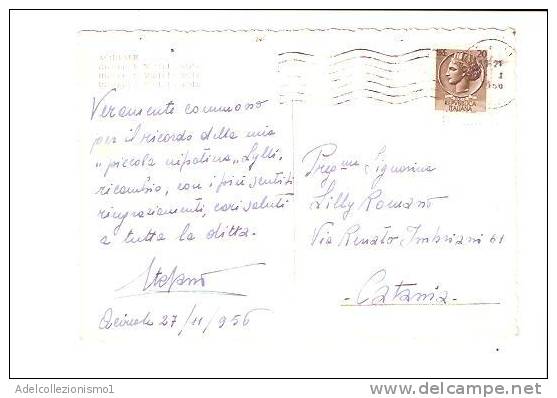 ACIREALE
Veramente commosso
per il ricordo della mia
"piccola nipotina" Lylli,
ricambio, con i più sentiti
ringraziamenti, cari saluti
a tutta la ditta.
Stefano
Acireale 27/11/956
20
REPVBBLICA
ITALIANA
Preg.ma Signorina
Lilly Romano
Via Renato Imbriani 61
- Catania -
Adelcollezionismo1
delcampe.net